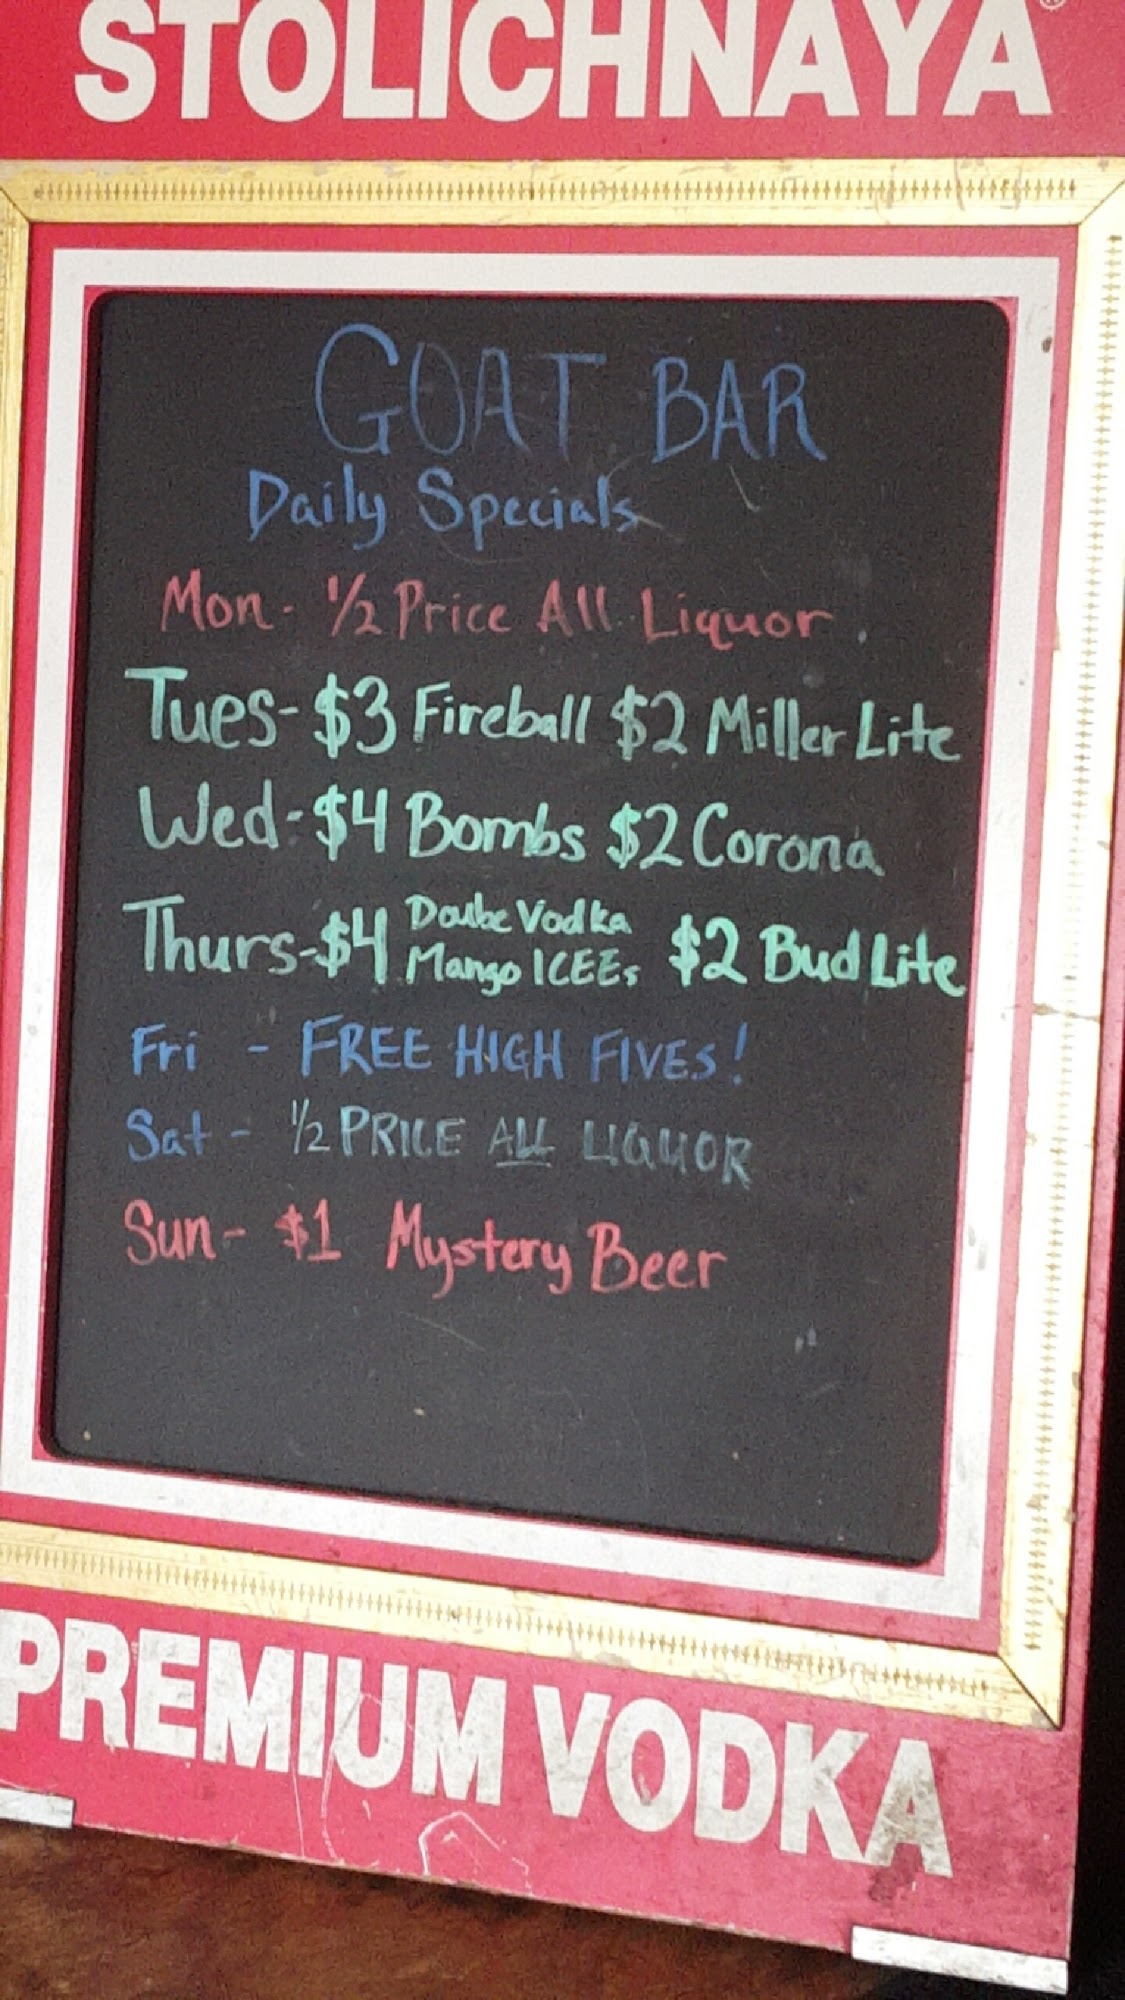 STOLICHNAYA®
GOAT BAR
Daily Specials
Mon - 1/2 Price All Liquor
Tues - $3 Fireball $2 Miller Lite
Wed - $4 Bombs $2 Corona
Thurs - $4 Doulbe Vodka Mango ICEEs $2 Bud Lite
Fri - FREE HIGH FIVES!
Sat - 1/2 PRICE ALL LIQUOR
Sun - $1 Mystery Beer
PREMIUM VODKA